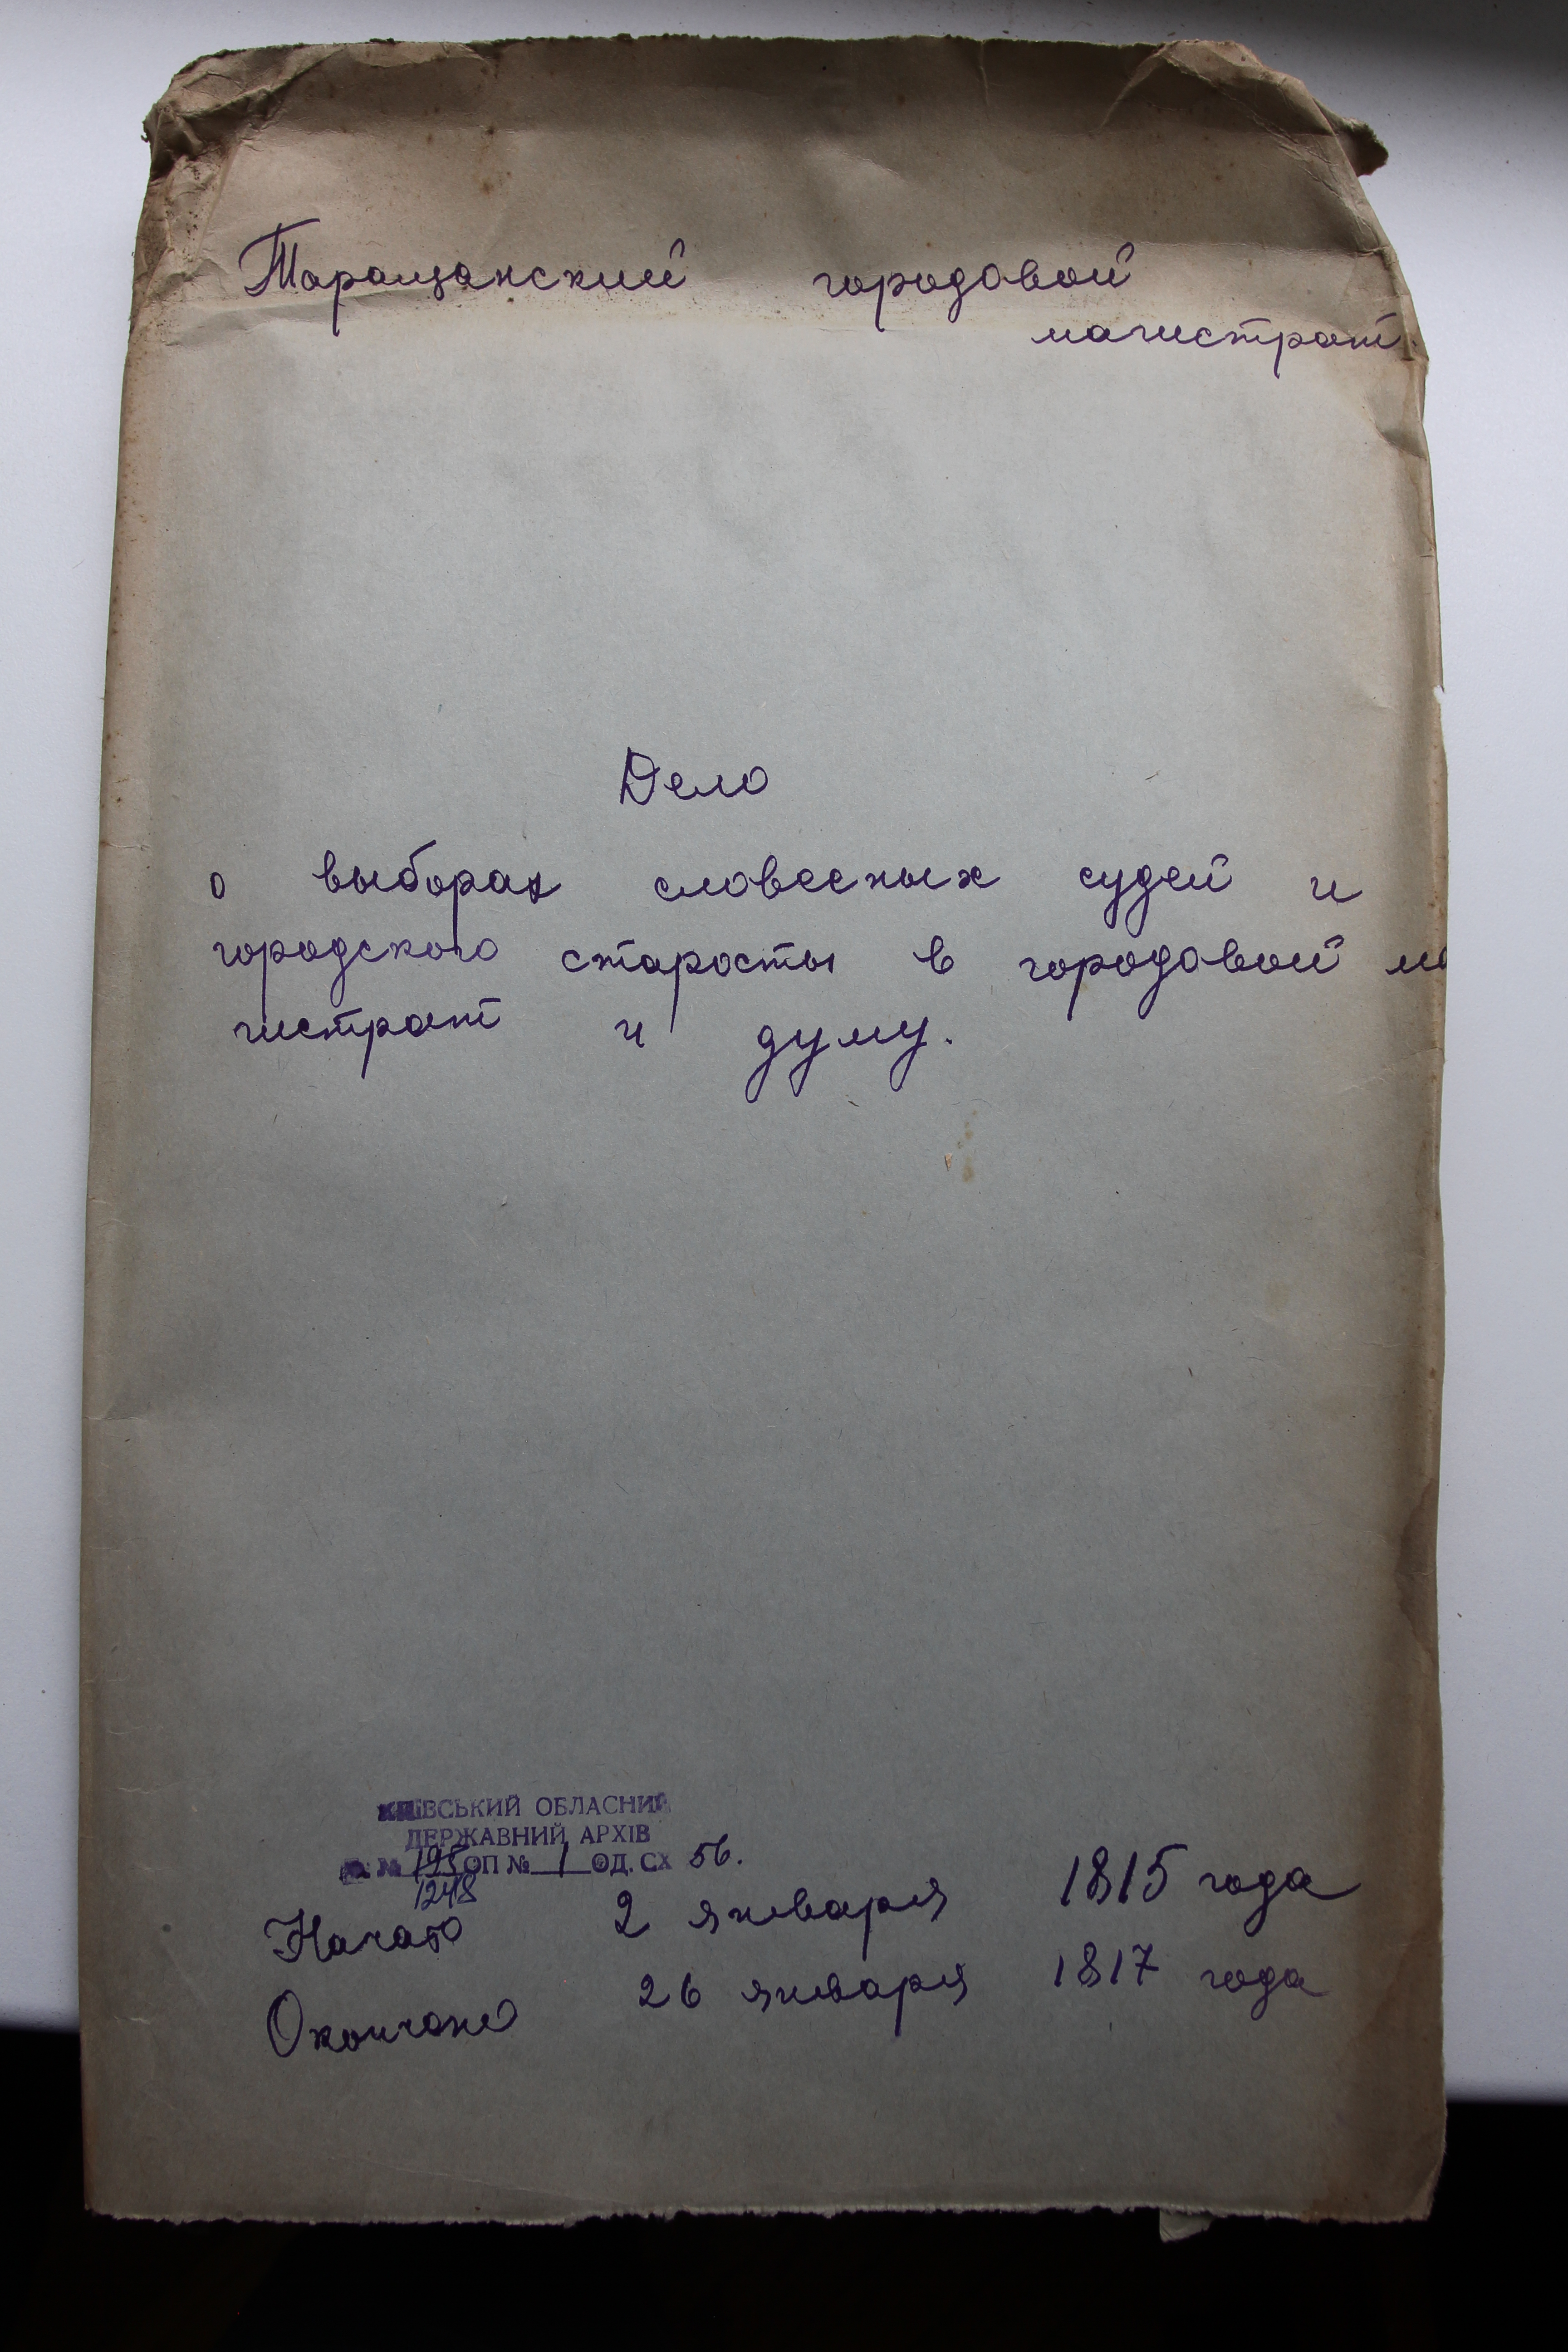 Таращанский городовой
магистрат
Дело
о выборах словесных судей и
городского старосты в городовой ма
гистрат и думу.
КИЇВСЬКИЙ ОБЛАСНИЙ
ДЕРЖАВНИЙ АРХІВ
Ф. № 195 ОП № 1 ОД. СХ 56.
1248
Начато 2 января 1815 года
Окончено 26 января 1817 года